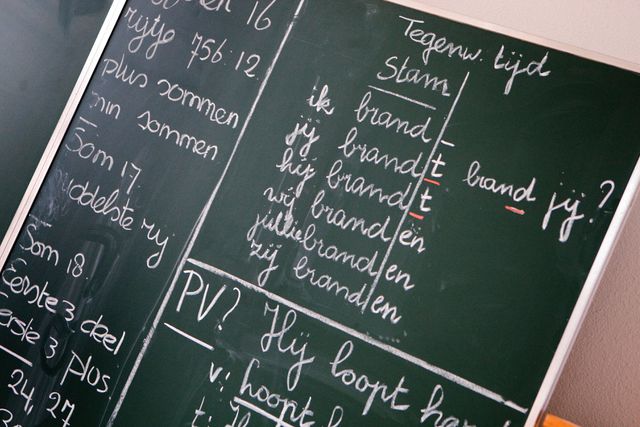 16
rijtje 756:12.
plus sommen
min sommen
Som 17.
middelste rij
Som 18.
Eerste 3 deel
Eerste 3 plus
24, 27
Tegenw. tijd
Stam
ik brand -
jij brand t brand jij?
hij brand t
wij brand en
jullie brand en
zij brand en
PV? Hij loopt
v: hoopt